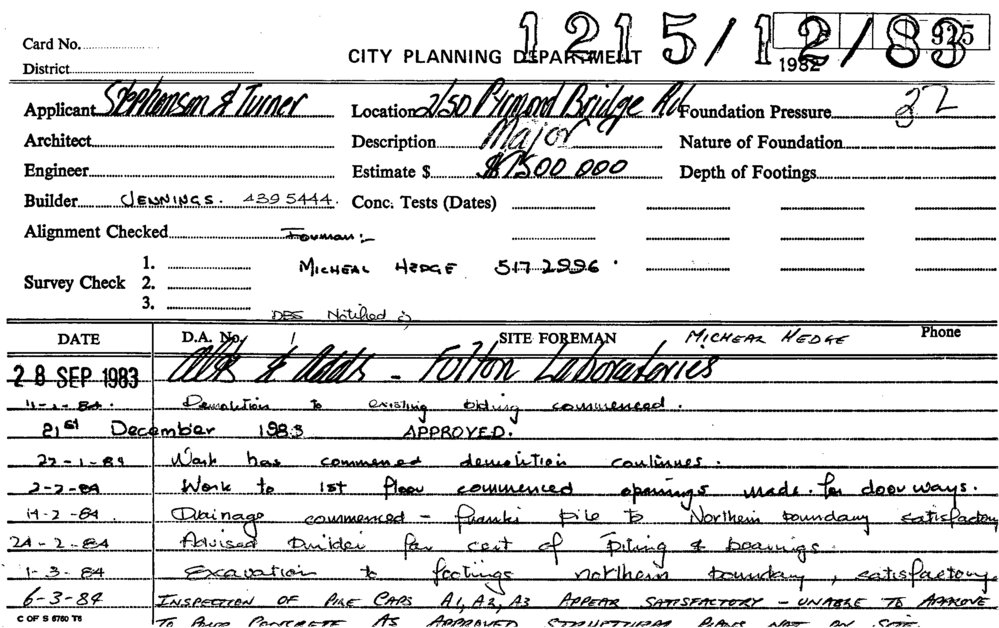 1215/12/83
Card No.
925
CITY PLANNING DEPARTMENT
1982
District
Applicant Stephenson & Turner Location 2/50 Pyrmond Bridge Rd Foundation Pressure 22
Architect Description Major Nature of Foundation
Engineer Estimate $ $1500 000 Depth of Footings
Builder JENNINGS. 439 5444. Conc. Tests (Dates)
Alignment Checked Forman:-
1. MICHEAL HEDGE 517 2996.
Survey Check 2.
3.
DBS Notified
DATE D.A. No. 1 SITE FOREMAN MICHEAL HEDGE Phone
28 SEP 1983 Alts & Adds - Fulton Laboratories
11-2-84. Demolition to existing commenced.
21st December 1983 APPROVED.
22-1-84 Work has commenced demolition continues.
2-2-84 Work to 1st floor commenced openings made for doorways.
14-2-84. Drainage commenced - franki pile to Northern boundary satisfactory
24-2-84 Advised builder for cert of piling & bearings.
1-3-84 Excavation to footings northern boundary, satisfactory.
6-3-84 INSPECTION OF PILE CAPS A1, A2, A3 APPEAR SATISFACTORY - UNABLE TO APPROVE
C OF S 5760 T6 TO POUR CONCRETE AS APPROVED STRUCTURAL PLANS NOT ON SITE.